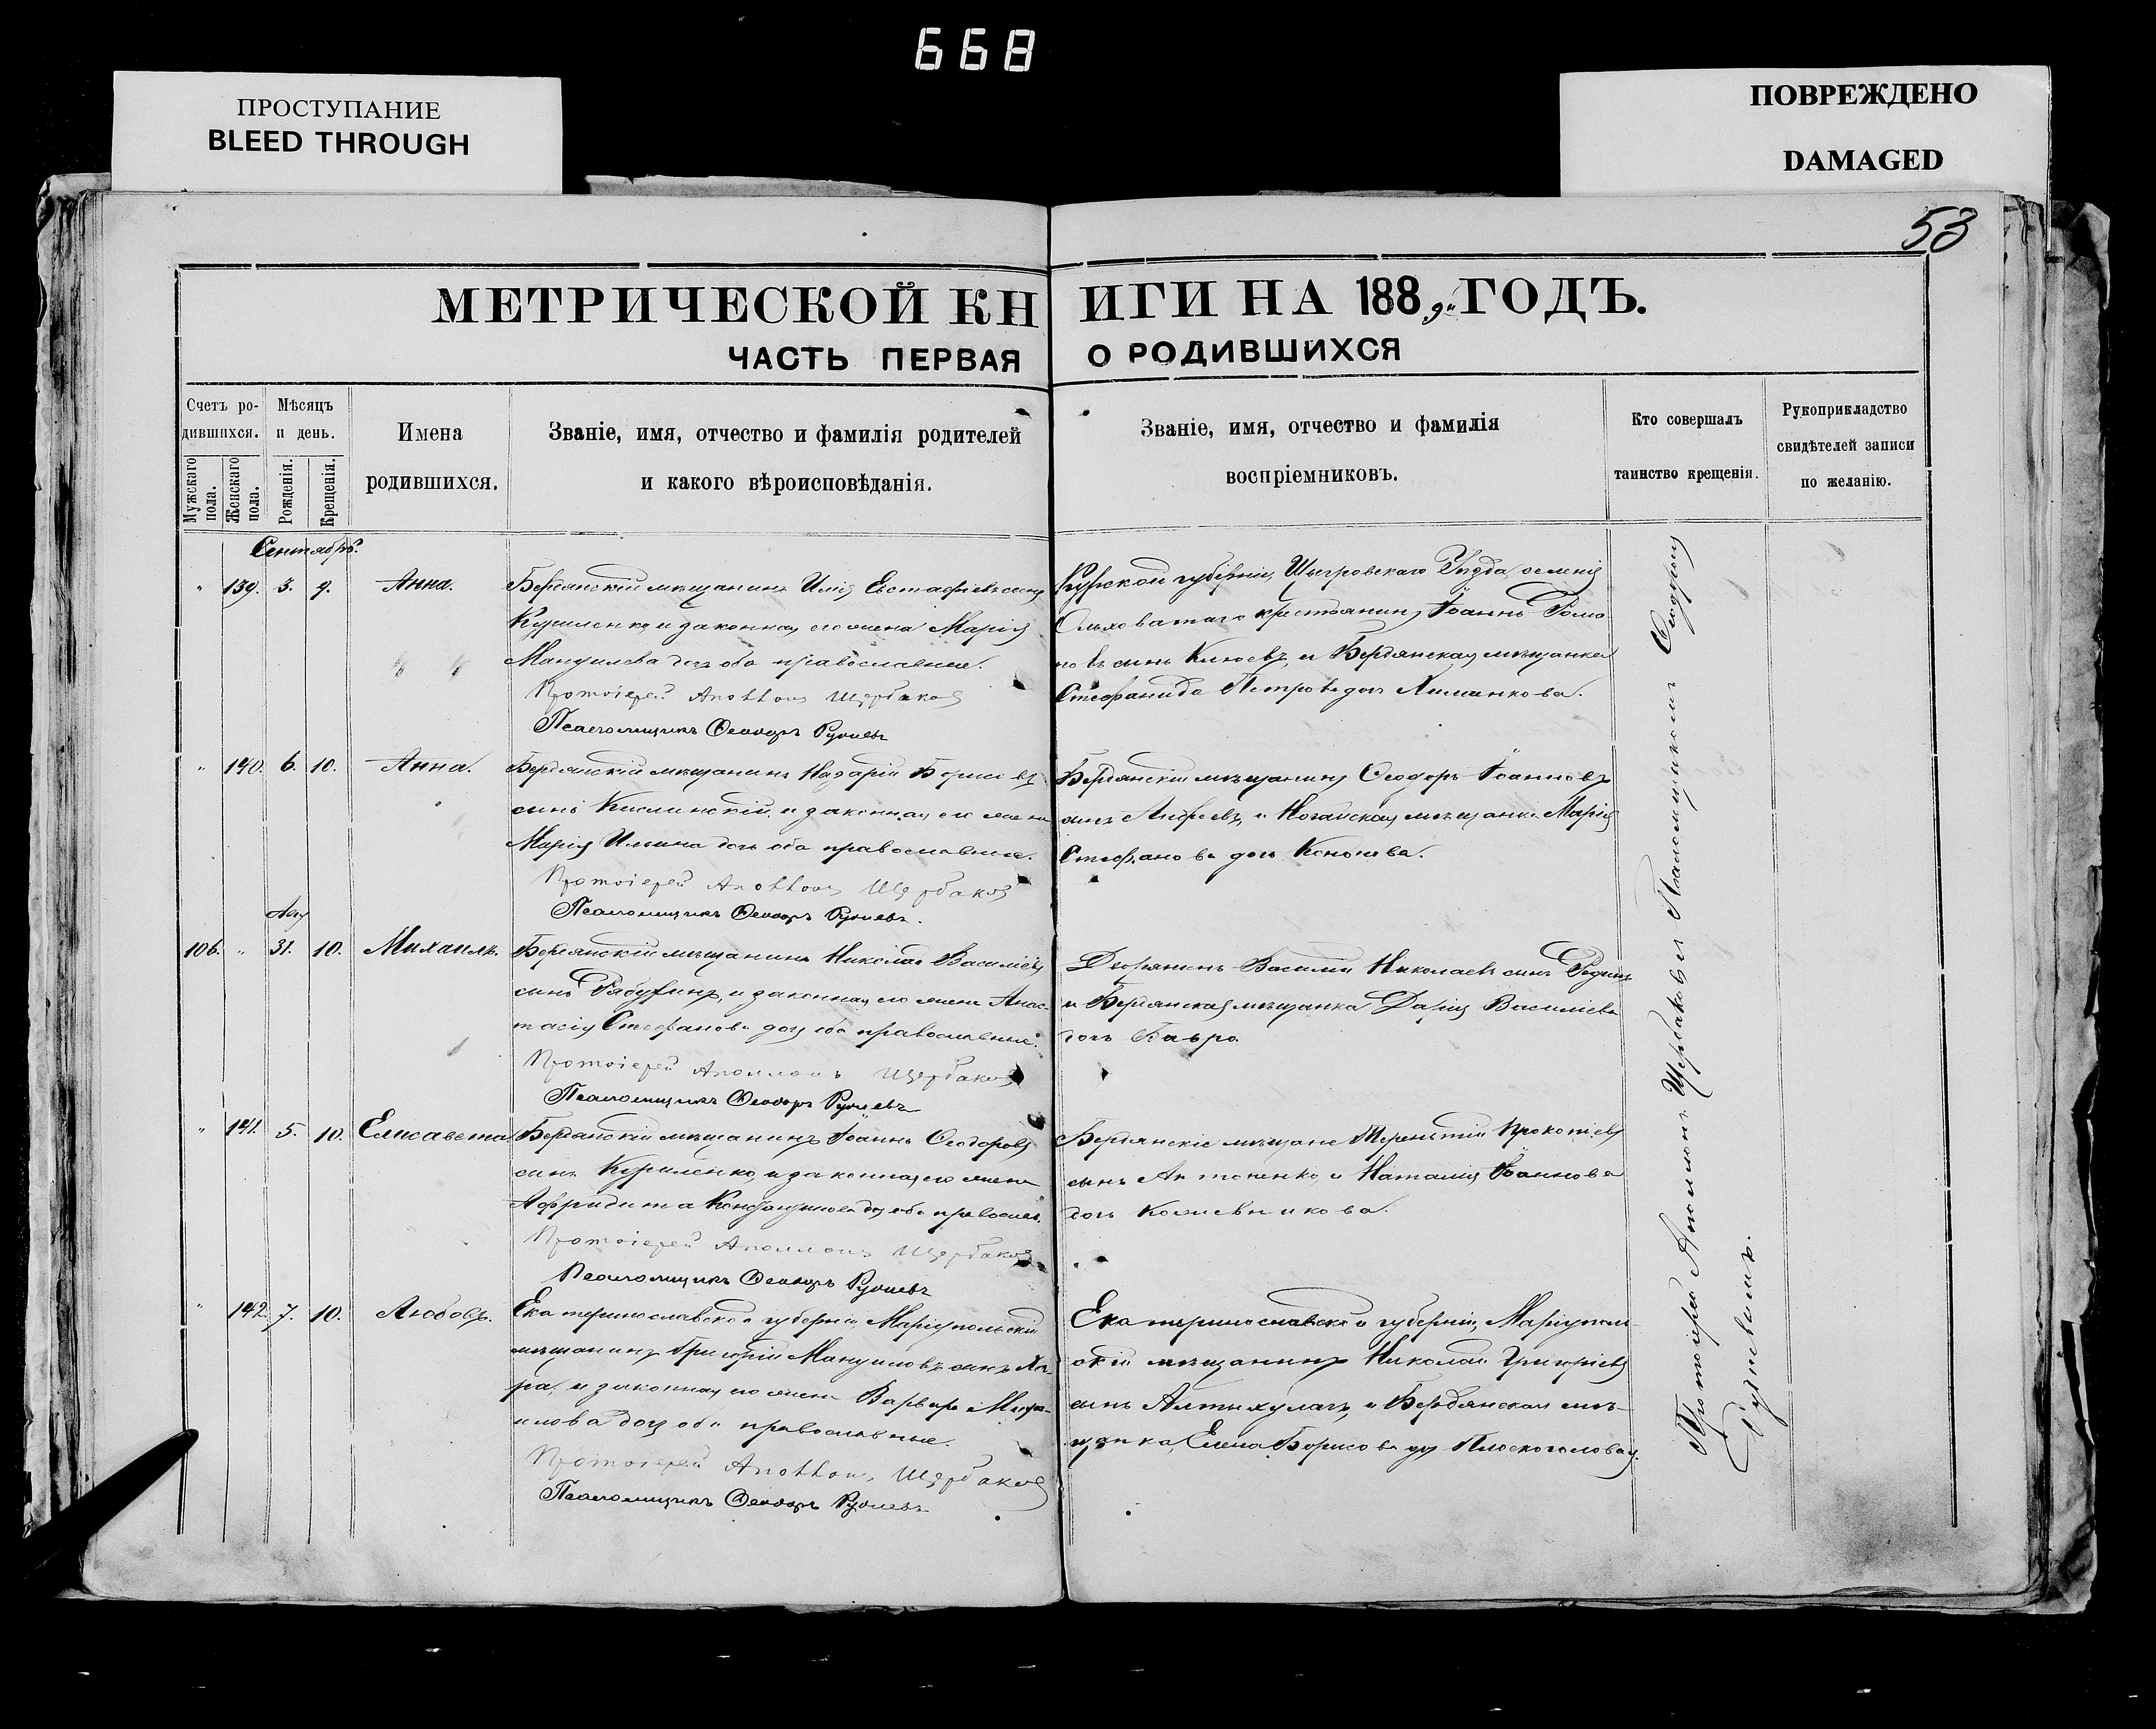 668
ПРОСТУПАНИЕ
BLEED THROUGH
ПОВРЕЖДЕНО
DAMAGED
53
МЕТРИЧЕСКОЙ КНИГИ НА 1889 ГОДЪ.
ЧАСТЬ ПЕРВАЯ О РОДИВШИХСЯ
Счетъ ро-
дившихся.
Мужскаго пола.
Женскаго пола.
Мѣсяцъ
и день.
Рожденія.
Крещенія.
Имена
родившихся.
Званіе, имя, отчество и фамилія родителей
и какого вѣроисповѣданія.
Званіе, имя, отчество и фамилія
воспріемниковъ.
Кто совершалъ
таинство крещенія.
Рукоприкладство
свидѣтелей записи
по желанію.
Сентябрь.
" 139. 3. 9. Анна.
Бердянскій мѣщанинъ Илія Евстафіевъ сынъ
Куриленко, и законная его жена Марія
дочь оба православные.
Протоіерей Аполлонъ Щербаковъ
Псаломщикъ Ѳеодоръ
Курской губерніи, Щигровскаго Уѣзда, селенія
Ольховатаго крестьянинъ Іоаннъ Рома
новъ сынъ Клюевъ, и Бердянская мѣщанка
Стефанида Петрова дочь
" 140. 6. 10. Анна.
Бердянскій мѣщанинъ Назарій Борисовъ
сынъ Кислинскій, и законная его жена
Марія Ильина дочь оба православные.
Протоіерей Аполлонъ Щербаковъ
Псаломщикъ Ѳеодоръ
Бердянскій мѣщанинъ Ѳеодоръ Іоанновъ
сынъ Андреевъ, и Ногайская мѣщанка Марія
Стефанова дочь
Авг
106. " 31. 10. Михаилъ.
Бердянскій мѣщанинъ Николай Василіевъ
сынъ и законная его жена Анас-
тасія Стефанова дочь оба православные.
Протоіерей Аполлонъ Щербаковъ
Псаломщикъ Ѳеодоръ
Дворянинъ Василій Николаевъ сынъ
и Бердянская мѣщанка Дарія Василіева
дочь
" 141. 5. 10. Елисавета
Бердянскій мѣщанинъ Іоаннъ Ѳеодоровъ
сынъ Куриленко, и законная его жена
Константинова дочь оба православ.
Протоіерей Аполлонъ Щербаковъ
Псаломщикъ Ѳеодоръ
Бердянскіе мѣщане Терентій Прокопіевъ
сынъ Антоненко и Наталія Іоаннова
дочь Кожевникова.
" 142. 7. 10. Любовь.
Екатеринославской губерніи Маріупольскій
мѣщанинъ Григорій сынъ
и законная его жена Варвара
дочь оба православные.
Протоіерей Аполлонъ Щербаковъ
Псаломщикъ Ѳеодоръ
Екатеринославской губерніи, Маріуполь-
скій мѣщанинъ Николай Григоріевъ
сынъ и Бердянская мѣ-
щанка, Елена Борисова дочь Плоскоголовая.
Протоіерей Аполлонъ Щербаковъ и Псаломщикомъ Ѳеодоромъ